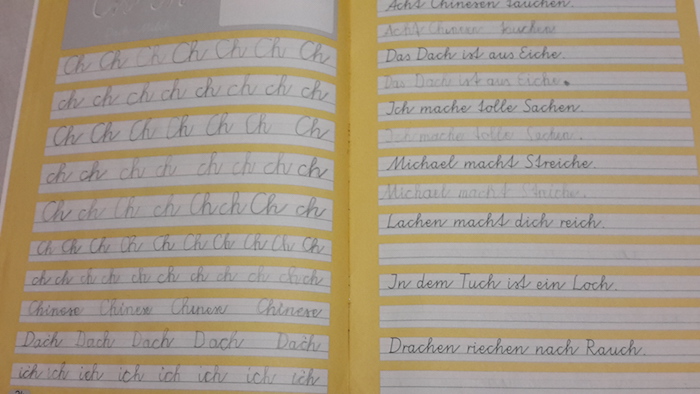 Ch Ch Ch Ch Ch Ch Ch
ch ch ch ch ch ch ch ch
Ch Ch Ch Ch Ch Ch Ch
ch ch ch ch ch ch ch ch
Ch ch Ch ch Ch ch Ch ch
Ch Ch Ch Ch Ch Ch Ch Ch Ch Ch
ch ch ch ch ch ch ch ch ch ch ch
Chinese Chinese Chinese Chinese
Dach Dach Dach Dach Dach
ich ich ich ich ich ich ich ich
Acht Chinesen tauchen.
Acht Chinesen tauchen
Das Dach ist aus Eiche.
Das Dach ist aus Eiche.
Ich mache tolle Sachen.
Ich mache tolle Sachen.
Michael macht Streiche.
Michael macht Streiche.
Lachen macht dich reich.
In dem Tuch ist ein Loch.
Drachen riechen nach Rauch.